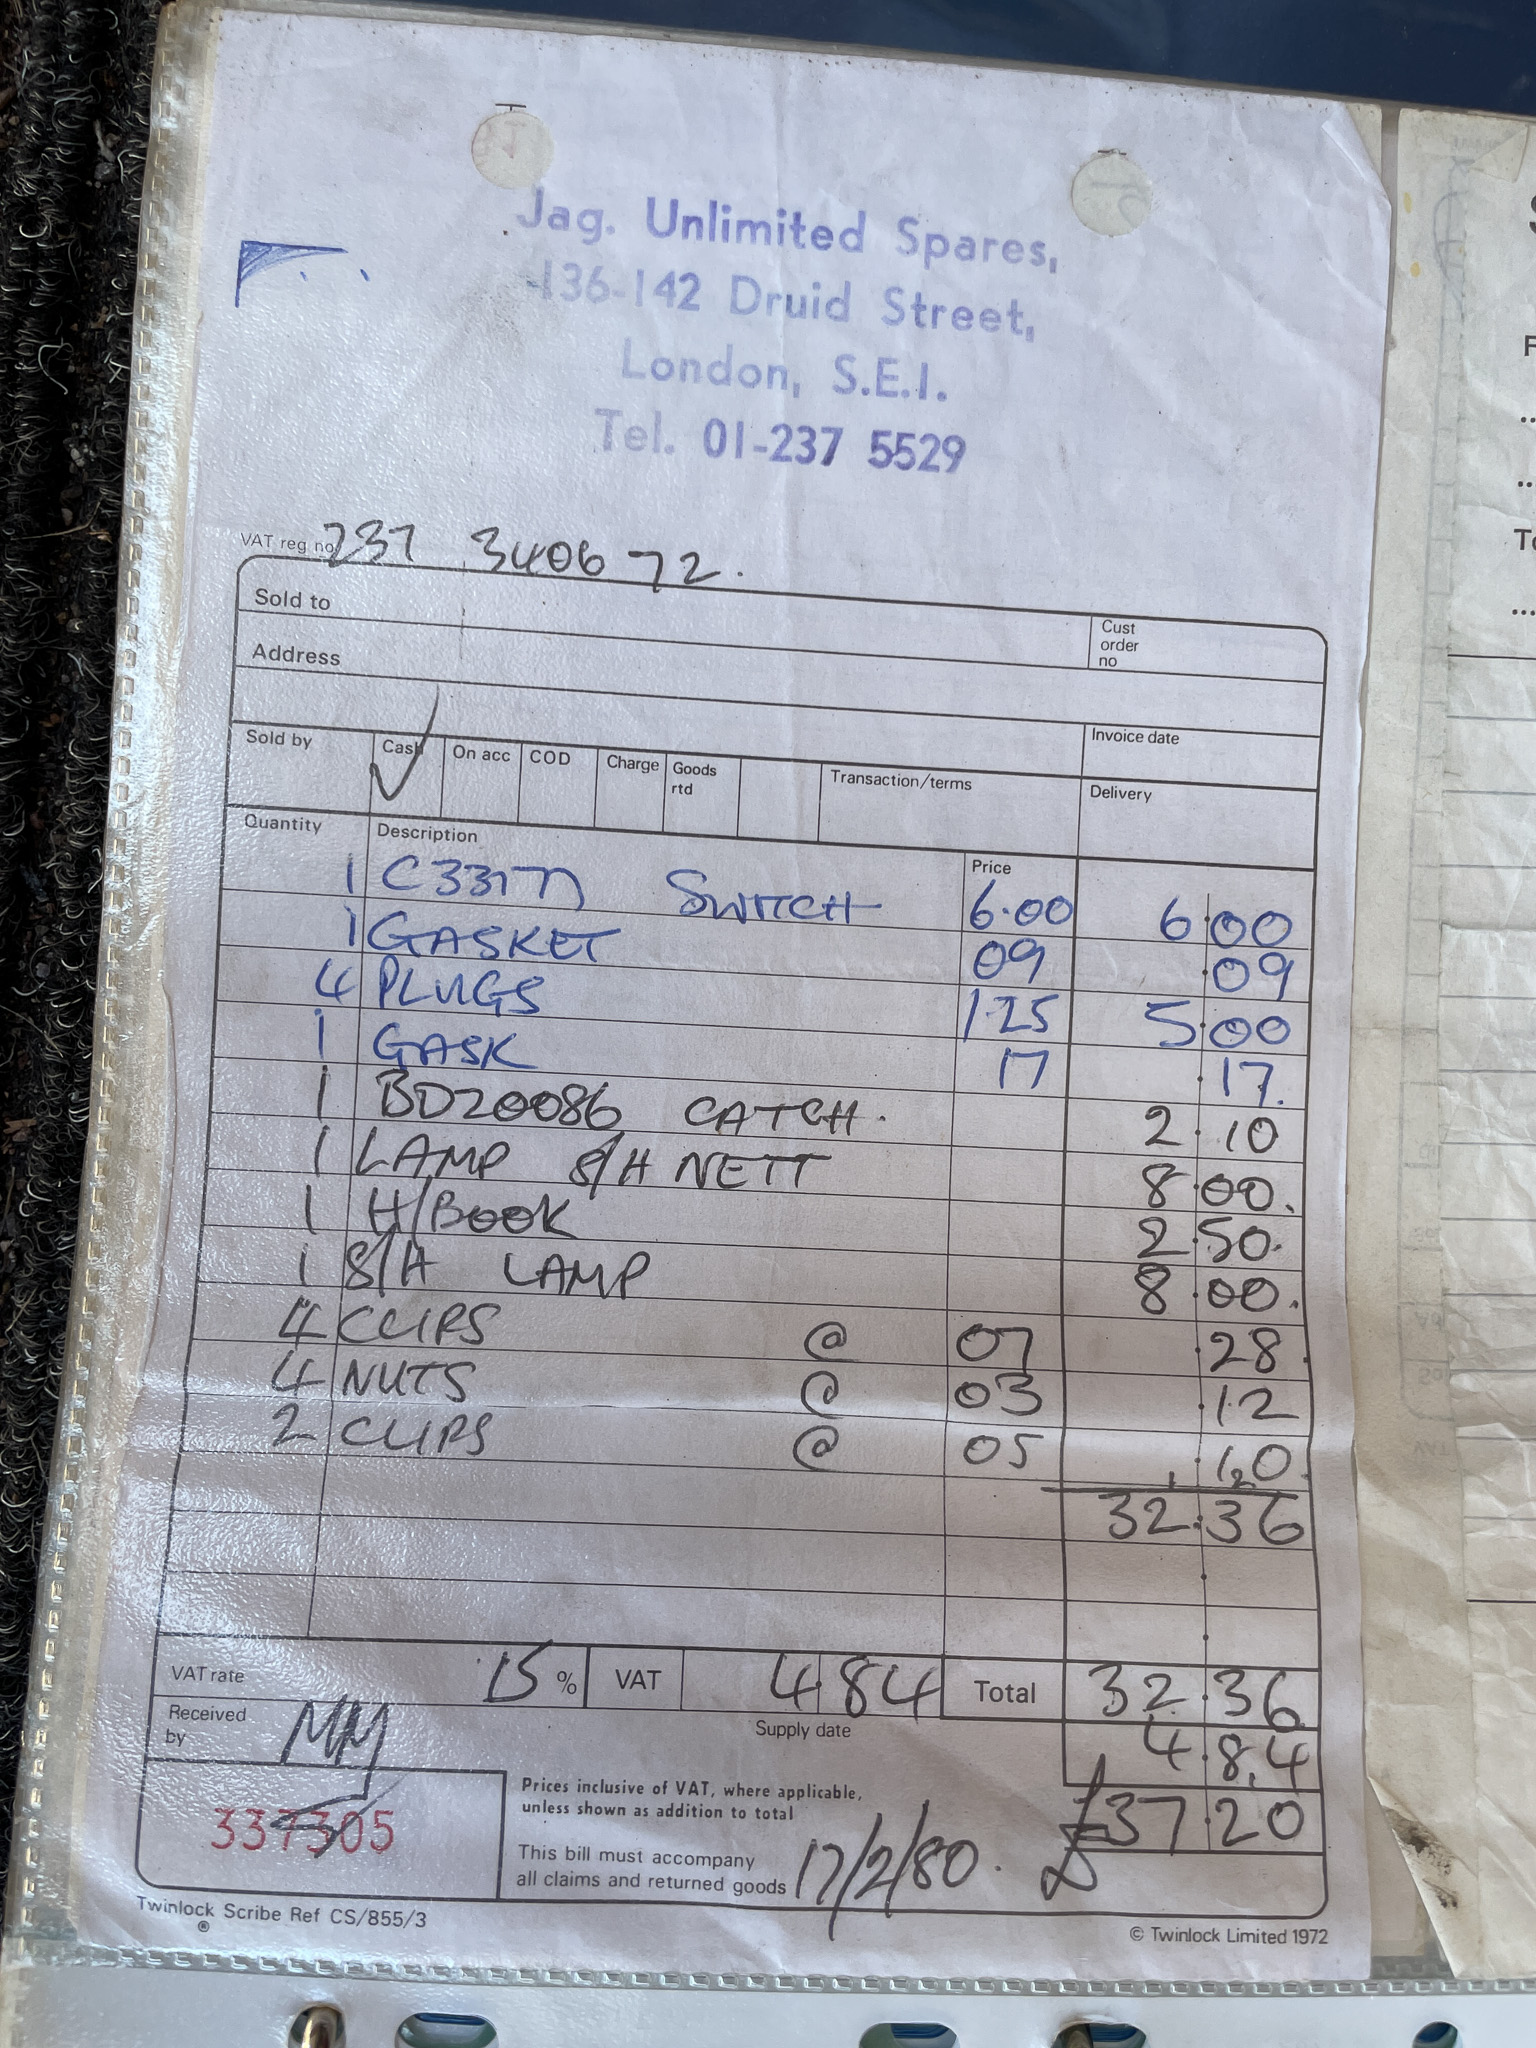 Jag. Unlimited Spares,
136-142 Druid Street,
London, S.E.1.
Tel. 01-237 5529
VAT reg no 237 3406 72.
Sold to
Cust order no
Address
Invoice date
Sold by Cash ✓ On acc COD Charge Goods rtd Transaction/terms Delivery
Quantity Description Price
1 SWITCH 6.00 6.00
1 GASKET 09 .09
4 PLUGS 1.25 5.00
1 GASK 17 .17.
1 BD20086 CATCH. 2.10
1 LAMP S/H NETT 8.00.
1 H/BOOK 2.50.
1 S/H LAMP 8.00.
4 CLIPS @ 07 .28
4 NUTS @ 03 .12
2 CLIPS @ 05 .10
32.36
VAT rate 15 % VAT 4.84 Total 32.36
Received by MM Supply date 4.84
Prices inclusive of VAT, where applicable,
unless shown as addition to total
£37.20
337305
This bill must accompany
all claims and returned goods 17/2/80.
Twinlock Scribe Ref CS/855/3
®
© Twinlock Limited 1972